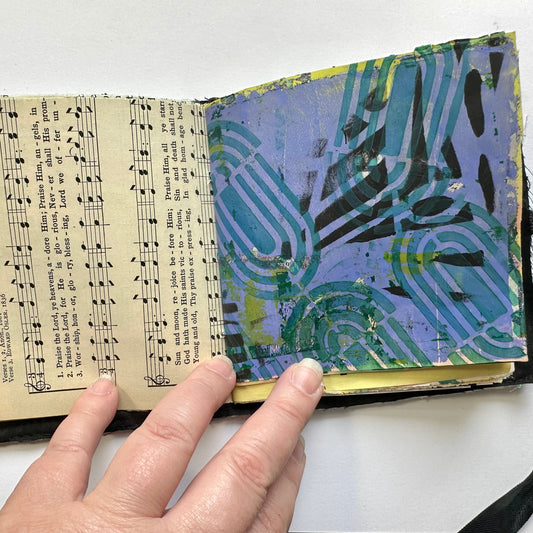 Verse 3, EDWARD OSLER
1. Praise the Lord, ye heavens, a - dore Him; Praise Him, an - gels, in
2. Praise the Lord, for He is glo - rious, Nev - er shall His prom-
3. Wor - ship, hon - or, glo - ry, bless - ing, Lord we of - fer un
Sun and moon, re - joice be - fore Him; Praise Him, all ye star
God hath made His saints vic - to - rious, Sin and death shall not
Young and old, Thy praise ex - press - ing, In glad hom - age bend